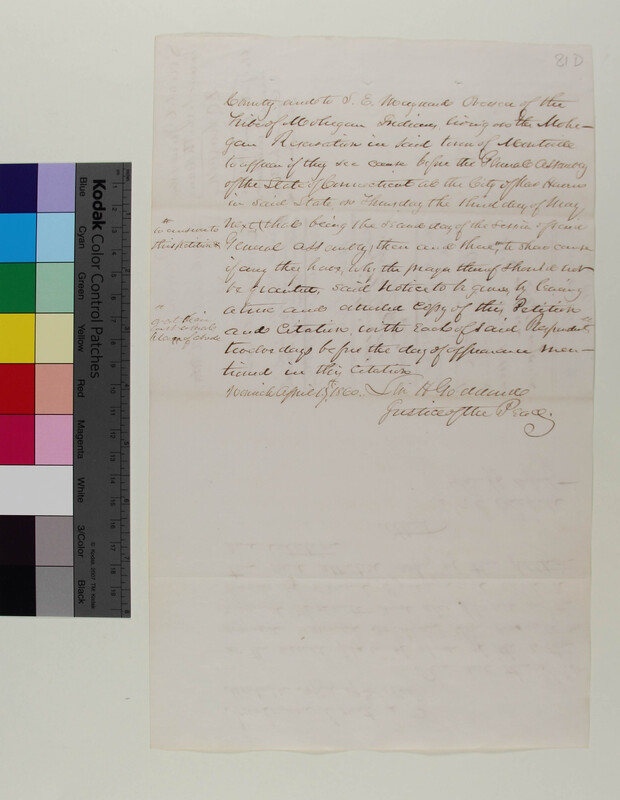 81 D
County, and to J. E. Maynard Overseer of the
Tribe of Mohegan Indians, living on the Mohe-
gan Reservation in said town of Montville
to appear if they see cause before the General Assembly
of the State of Connecticut at the City of New Haven
in said State on Thursday the third day of May
next, that being the second day of the session of said
General Assembly, then and there, to shew cause
if any they have, why the prayer thereof should not
be granted, said notice to be given by leaving
a true and attested copy of this Petition
and Citation, with each of said Respondents
twelve days before the day of appearance men-
tioned in this citation
Norwich April 1860.
H Goddard
Justice of the Peace.
to answer to
this petition
or at their
last usual
place of abode
Kodak Color Control Patches
Blue
Cyan
Green
Yellow
Red
Magenta
White
3/Color
Black
© Kodak, 2007 TM: Kodak